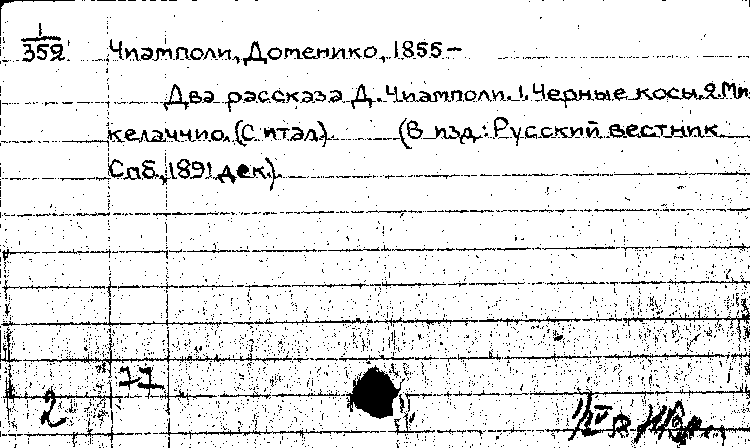 1
352
Чиамполи, Доменико, 1855-
Два рассказа Д. Чиамполи. 1. Черные косы. 2. Ми
келаччио. (С итал). (В изд: Русский вестник
Спб., 1891 дек.).
77
2